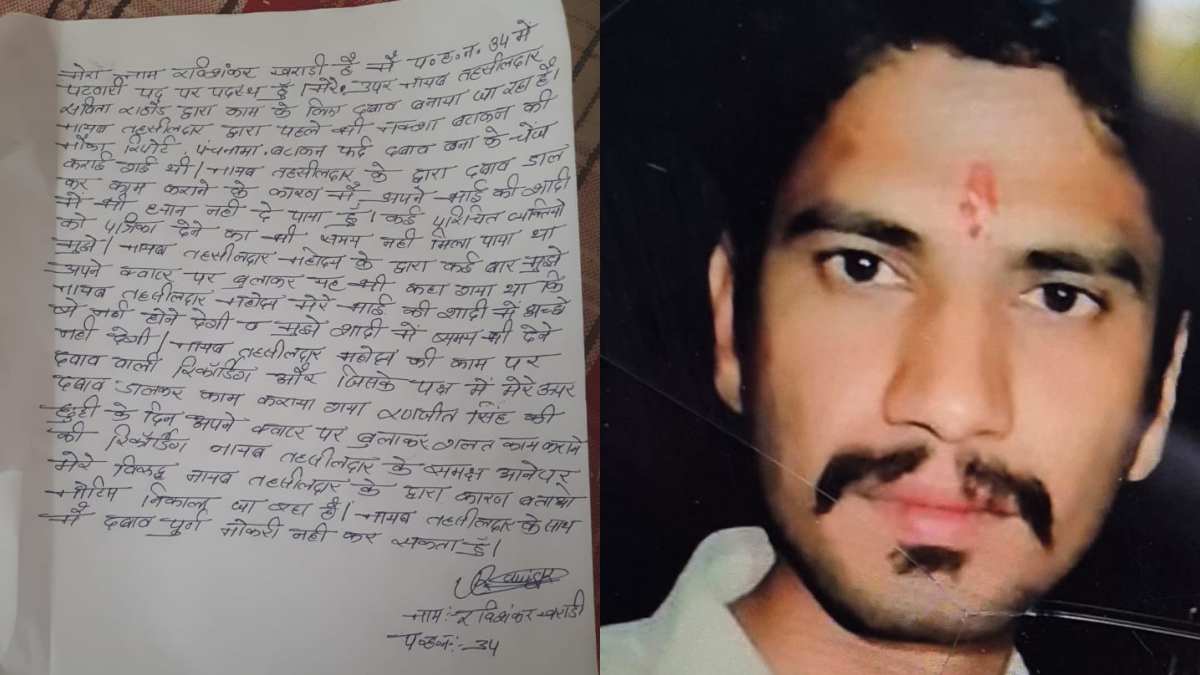 मेरा नाम रविशंकर खराडी है मैं प.ह.न. 34 में
पटवारी पद पर पदस्थ हूँ। मेरे उपर नायब तहसीलदार
सविता राठौड द्वारा काम के लिए दबाव बनाया जा रहा है।
नायब तहसीलदार द्वारा पहले भी नक्शा बटाकन की
मौका रिपोर्ट, पंचनामा, बटाकन फर्द दबाव बना के चेंज
कराई गई थी। नायब तहसीलदार के द्वारा दबाव डाल
कर काम कराने के कारण मैं अपने भाई की शादी
में भी ध्यान नही दे पाया हूँ। कई परिचित व्यक्तियो
को पत्रिका देने का भी समय नही मिला पाया था
मुझे। नायब तहसीलदार महोदय के द्वारा कई बार मुझे
अपने क्वाटर पर बुलाकर यह भी कहा गया था कि
नायब तहसीलदार महोदय मेरे भाई की शादी में अच्छे
से नही होने देगी व मुझे शादी में समय भी देने
नही देगी। नायब तहसीलदार महोदय की काम पर
दबाव वाली रिकॉर्डिंग और जिसके पक्ष में मेरे उपर
दबाव डालकर काम कराया गया रणजीत सिंह की
छुट्टी के दिन अपने क्वाटर पर बुलाकर गलत काम कराने
की रिकॉर्डिंग नायब तहसीलदार के समक्ष आने पर
मेरे विरुद्ध नायब तहसीलदार के द्वारा कारण बताओ
नोटिस निकाला जा रहा है। नायब तहसीलदार के साथ
मैं दबाव पुर्ण नोकरी नही कर सकता हूँ।
नाम:- रविशंकर खराडी
प.ह.न.:- 34